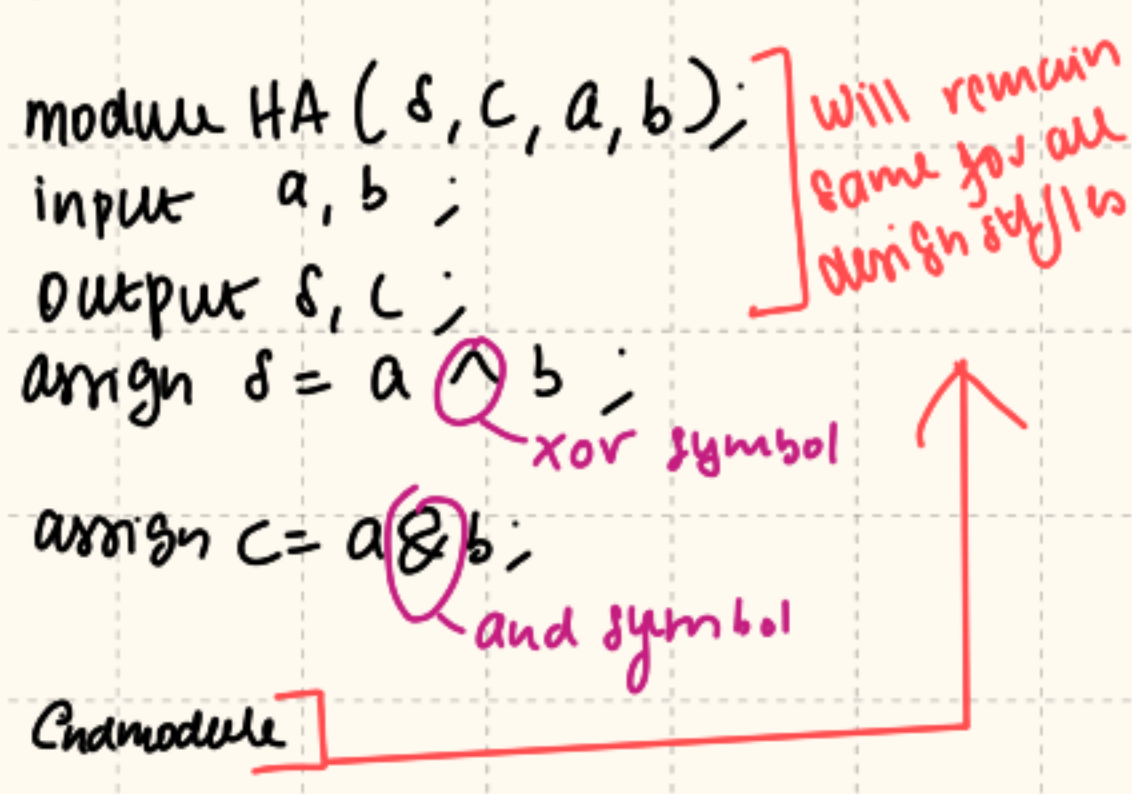 module HA (s, c, a, b);
input a, b ;
output s, c ;
assign s = a ^ b ;
xor symbol
assign c = a & b ;
and symbol
Endmodule
will remain
same for all
design styles